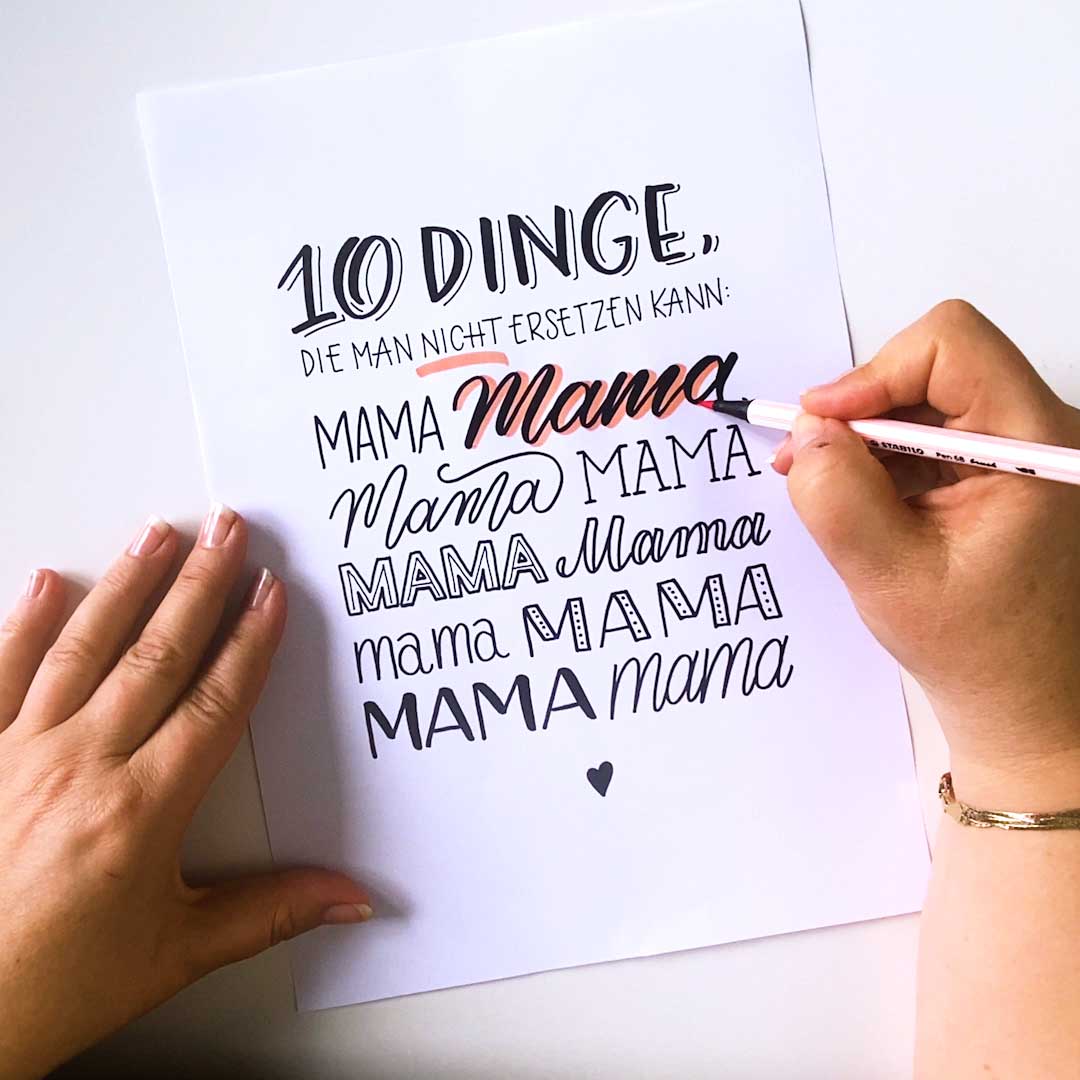 10 DINGE,
DIE MAN NICHT ERSETZEN KANN:
MAMA Mama
Mama MAMA
MAMA Mama
mama MAMA
MAMA mama
STABILO Pen 68